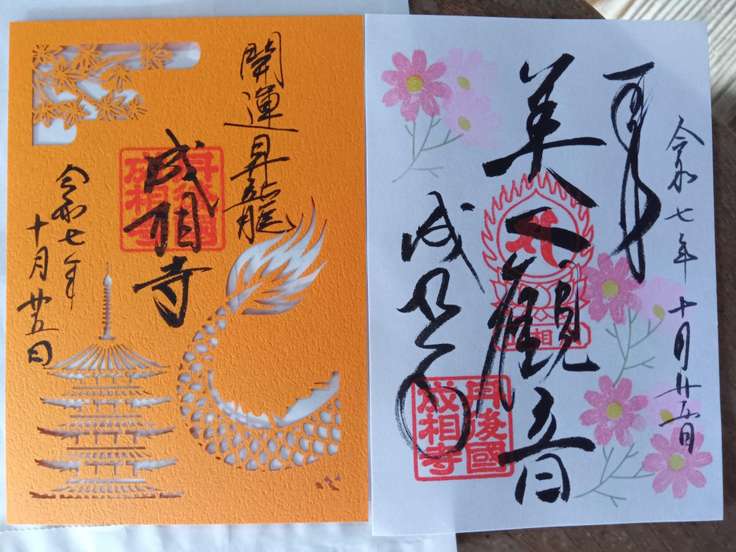 開運昇龍
成相寺
丹後國
成相寺
令和七年
十月廿五日
令和七年十月廿五日
拝
美人觀音
丹後國
成相寺